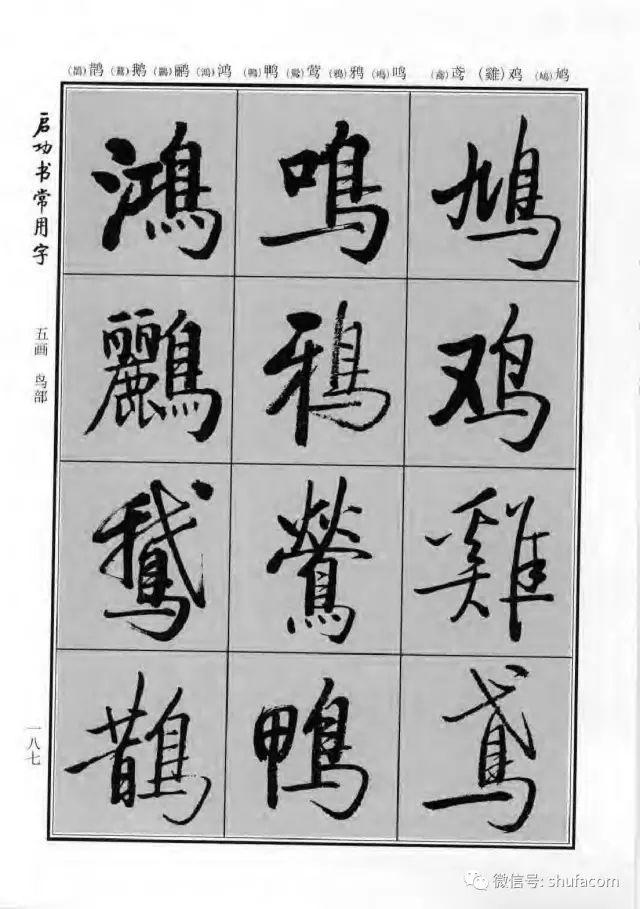 (鵲)鹊 (鵝)鹅 (鸝)鹂 (鴻)鸿 (鴨)鸭 (鶯)莺 (鴉)鸦 (鳴)鸣 (鳶)鸢 (雞)鸡 (鳩)鸠
鳩鸡雞鳶
鳴鴉鶯鴨
鴻鸝鵝鵲
启功书常用字
五画 鸟部
一八七
微信号: shufacom